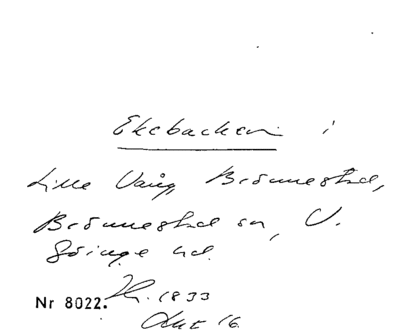 Ekebacken i
Lille Vång, Brönnestad,
Brönnestad sn, V.
Göinge hd.
Nr 8022. 1833
Akt 16